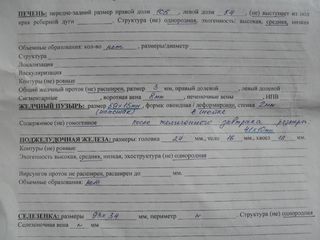 ПЕЧЕНЬ: передне-задний размер правой доли 105, левой доли 54, (не) выступает из под
края реберной дуги Структура (не) однородная, эхогенность: высокая, средняя, низкая
Объемные образования: кол-во нет, размеры/диаметр
Структура
Локализация
Васкуляризация
Контуры (не) ровные
Общий желчный проток (не) расширен, размер 3 мм, правый долевой, левый долевой
Сигментарные, воротная вена 8мм, печеночные вены НПВ
ЖЕЛЧНЫЙ ПУЗЫРЬ: размер форма: овоидная / деформирован, стенка 2мм
в шейке
Содержимое (не) гомогенное после желчегонного завтрака размеры
ПОДЖЕЛУДОЧНАЯ ЖЕЛЕЗА: размеры: головка 24 мм, тело 16 мм, хвост 18 мм
Контуры (не) ровные
Эхогенность высокая, средняя, низкая, эхоструктура (не) однородная
Вирсунгов проток не расширен, расширен до мм.
Объемные образования: нет
СЕЛЕЗЕНКА: размеры 93х34 мм, периметр Структура (не) однородная
Селезеночная вена мм